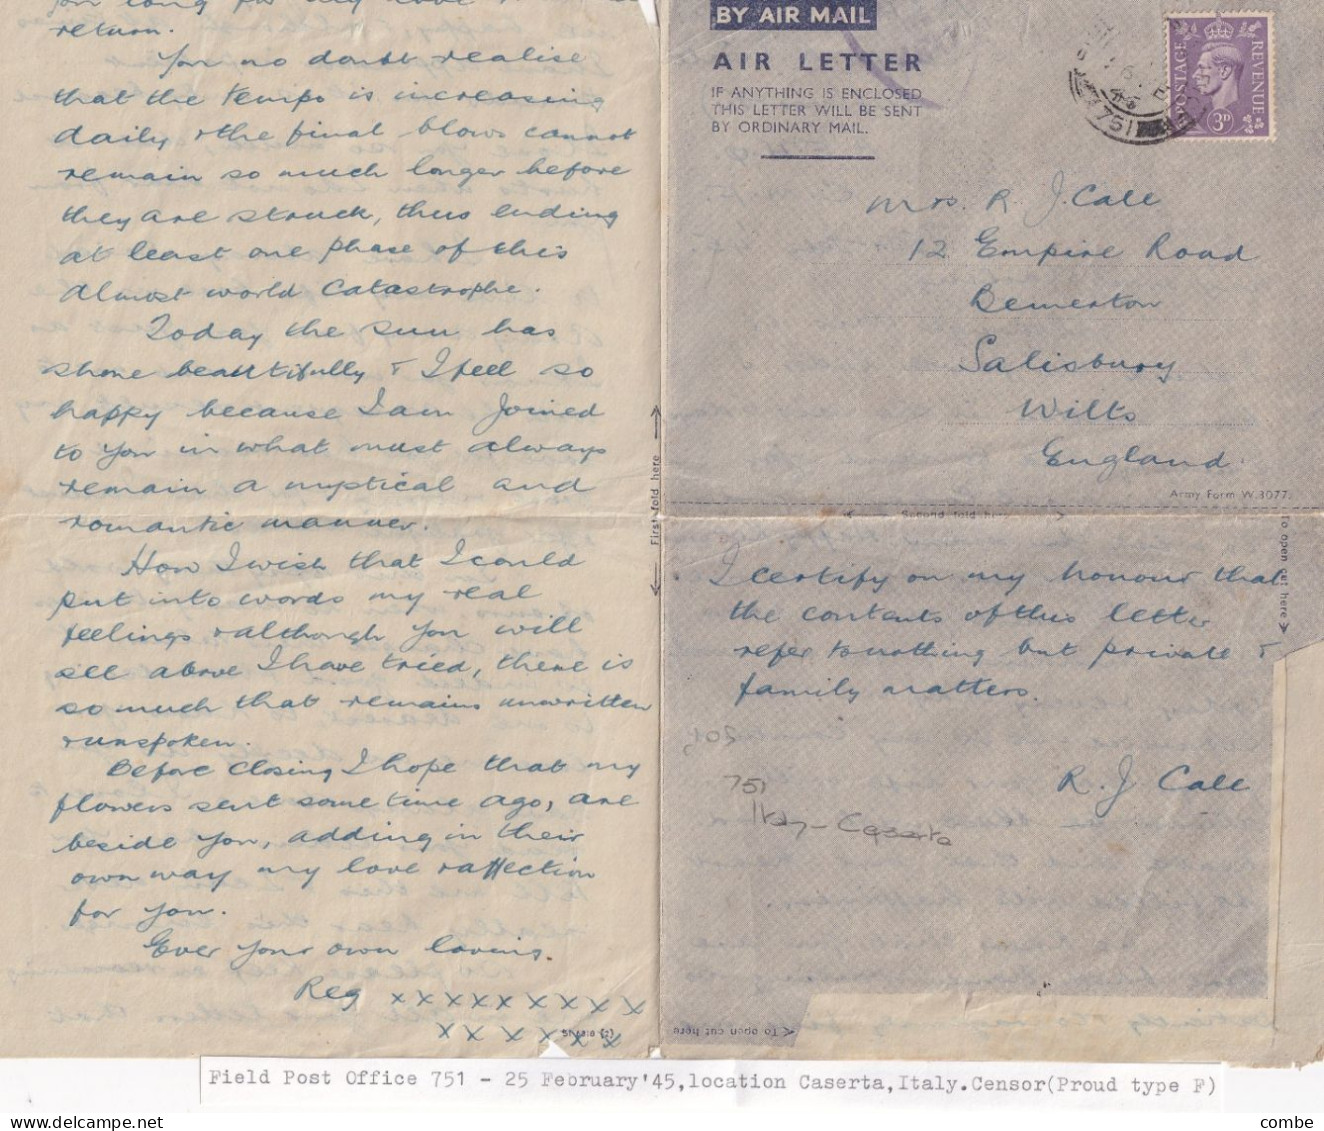 return.
You no doubt realise
that the tempo is increasing
daily & the final blows cannot
remain so much longer before
they are struck, thus ending
at least one phase of this
almost world catastrophe.
Today the sun has
shone beautifully & I feel so
happy because I am joined
to you in what must always
remain a mystical and
romantic manner.
How I wish that I could
put into words my real
feelings & although you will
see above I have tried, there is
so much that remains unwritten
& unspoken.
Before closing I hope that my
flowers sent some time ago, are
beside you, adding in their
own way my love & affection
for you.
Ever your own loving.
Reg x x x x x x x x x x
x x x x x x x
BY AIR MAIL
AIR LETTER
IF ANYTHING IS ENCLOSED
THIS LETTER WILL BE SENT
BY ORDINARY MAIL.
POSTAGE
REVENUE
3D
751
Mrs. R J. Cale
12 Empire Road
Bemerton
Salisbury
Wilts
England.
Army Form W.3077.
First fold here
Second fold here
To open cut here
I certify on my honour that
the contents of this letter
refer to nothing but private &
family matters.
R. J Cale
751
Italy - Caserta
To open cut here
Field Post Office 751 - 25 February'45,location Caserta,Italy.Censor(Proud type F)
combe